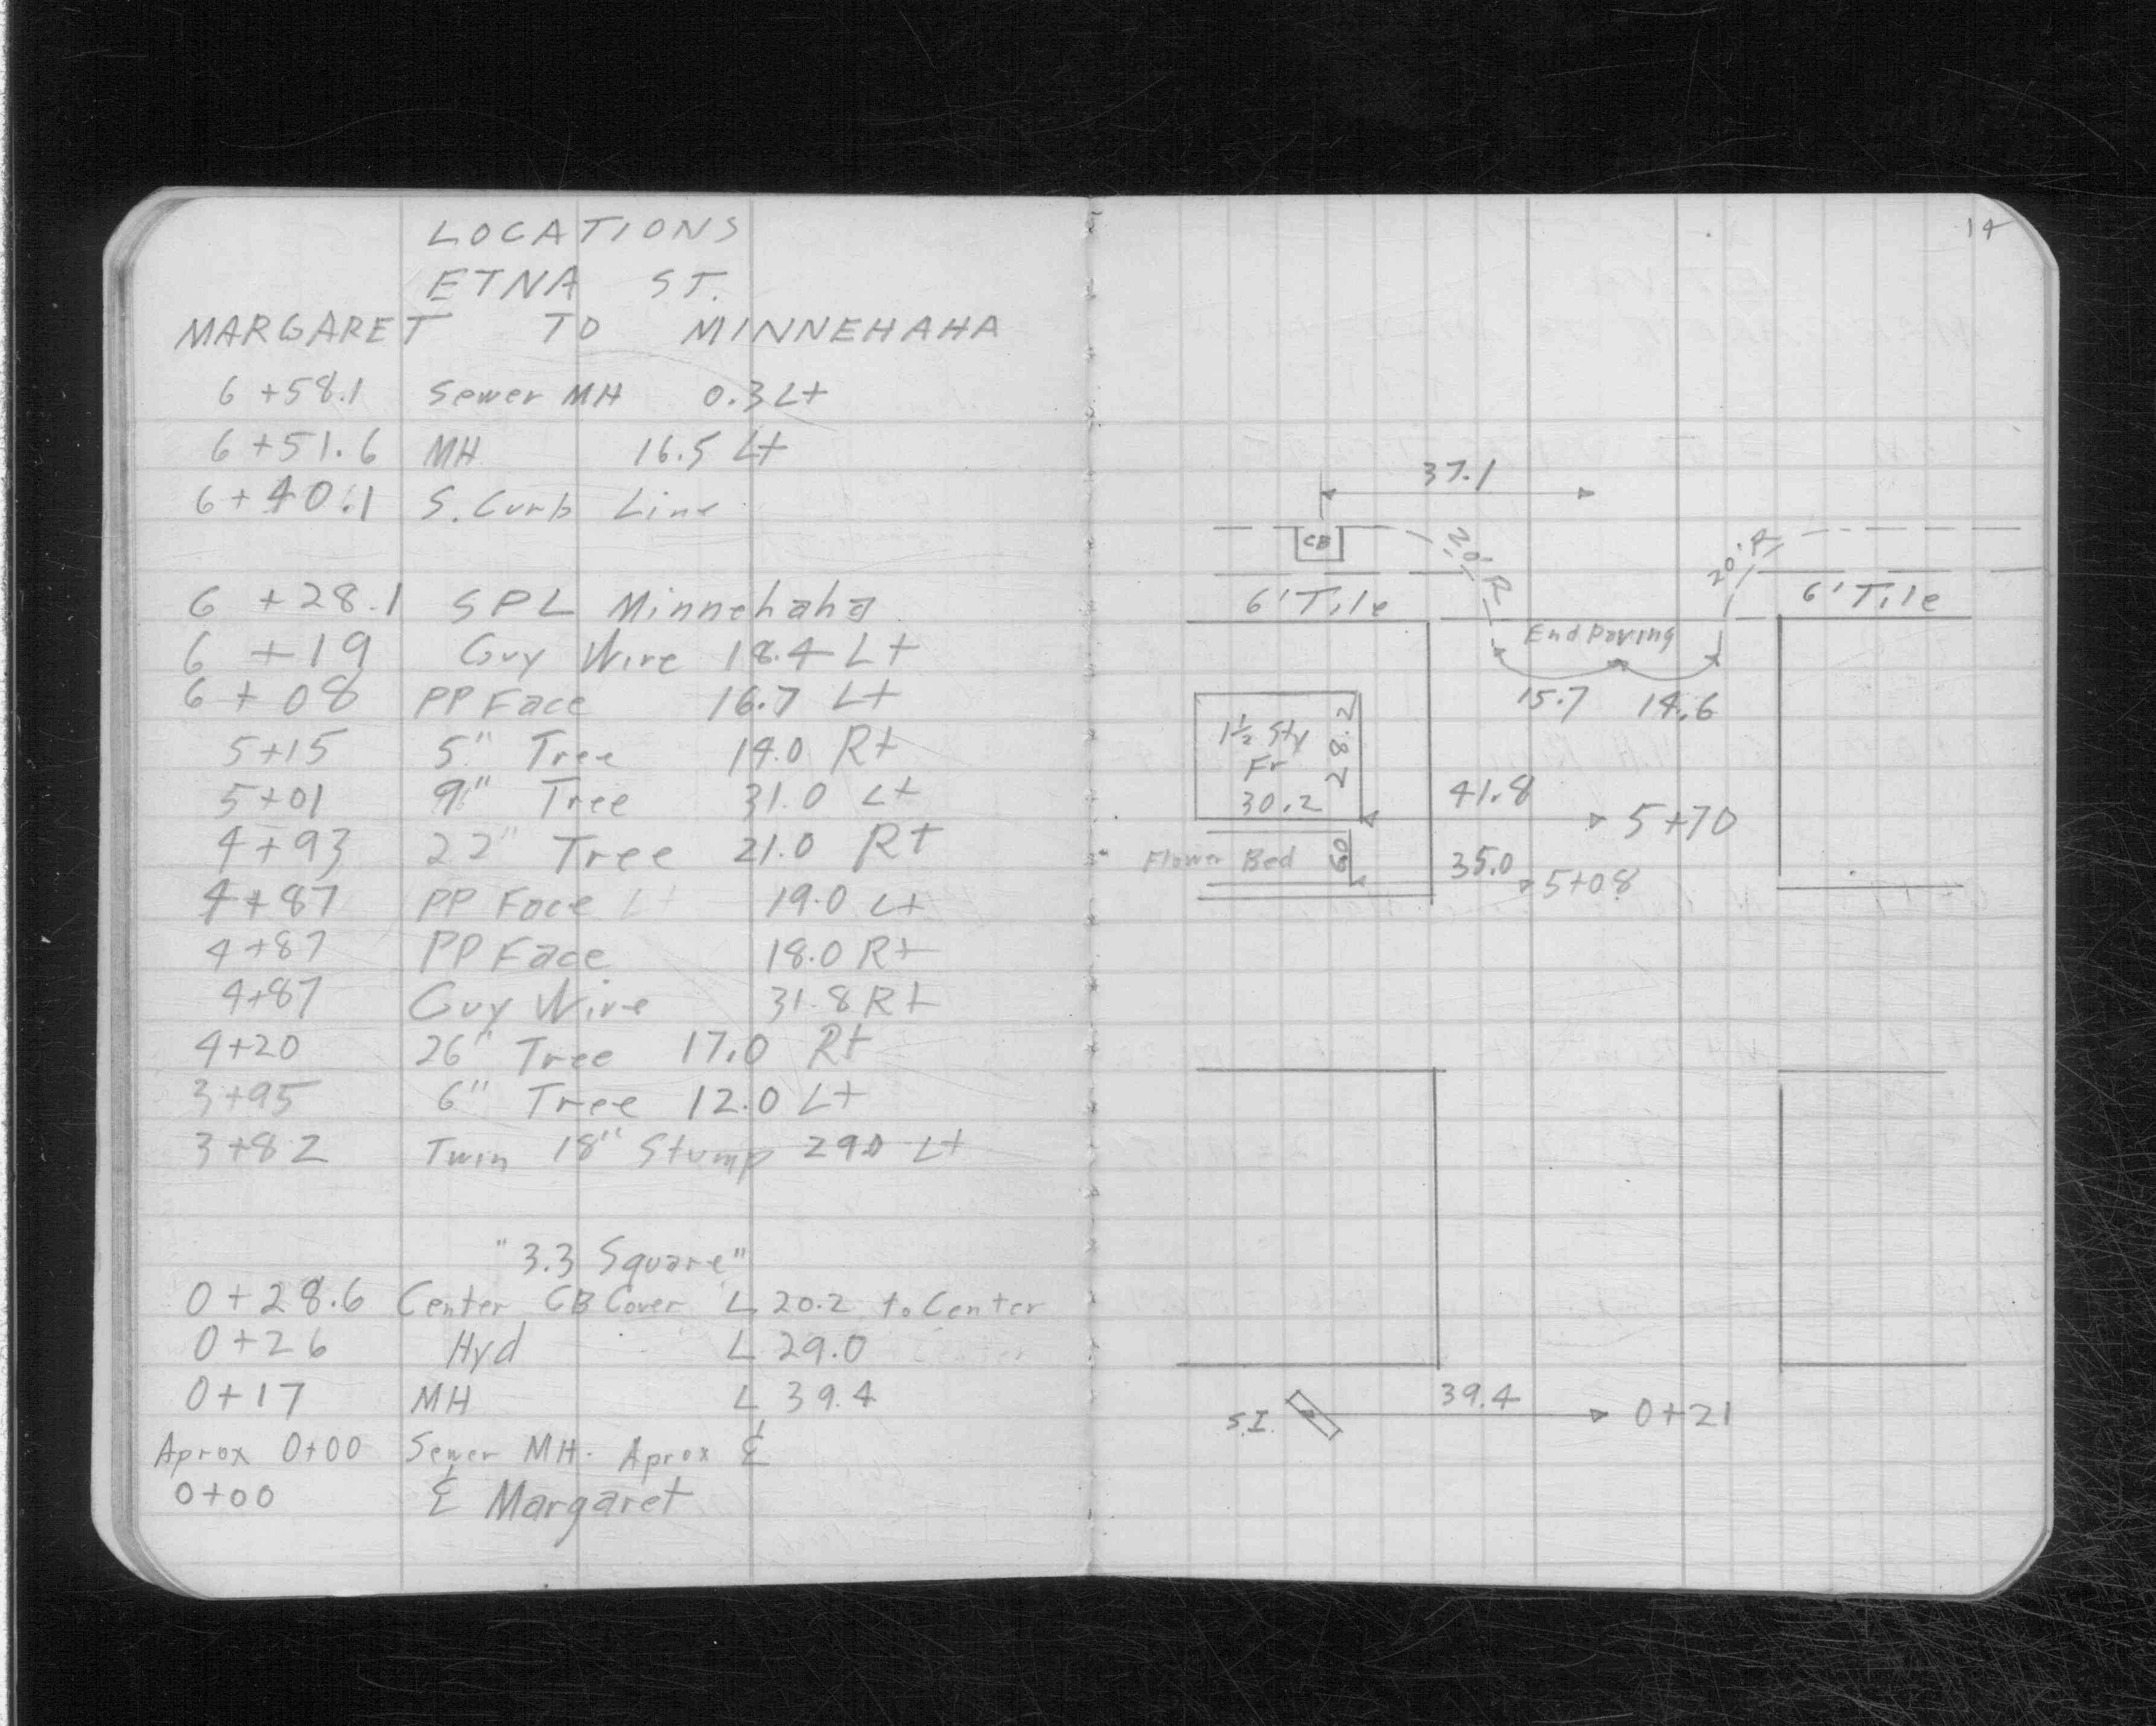 LOCATIONS
ETNA ST.
MARGARET TO MINNEHAHA
6+58.1 Sewer MH 0.3 Lt
6+51.6 MH 16.5 Lt
6+40.1 S. Curb Line
6+28.1 SPL Minnehaha
6+19 Guy Wire 18.4 Lt
6+08 PP Face 16.7 Lt
5+15 5" Tree 19.0 Rt
5+01 9" Tree 31.0 Lt
4+93 22" Tree 21.0 Rt
4+87 PP Face 19.0 Lt
4+87 PP Face 18.0 Rt
4+87 Guy Wire 31.8 Rt
4+20 26" Tree 17.0 Rt
3+95 6" Tree 12.0 Lt
3+82 Twin 18" Stump 29.0 Lt
"3.3 Square"
0+28.6 Center CB Cover L 20.2 to Center
0+26 Hyd L 29.0
0+17 MH L 39.4
Aprox 0+00 Sewer MH. Aprox ℄
0+00 ℄ Margaret
14
37.1
CB 20'R 20'R
6' Tile 6' Tile
End Paving
15.7 14.6
1½ Sty
Fr 28.2
30.2 41.8
5+70
Flower Bed 35.0
5+08
39.4
S.I. 0+21